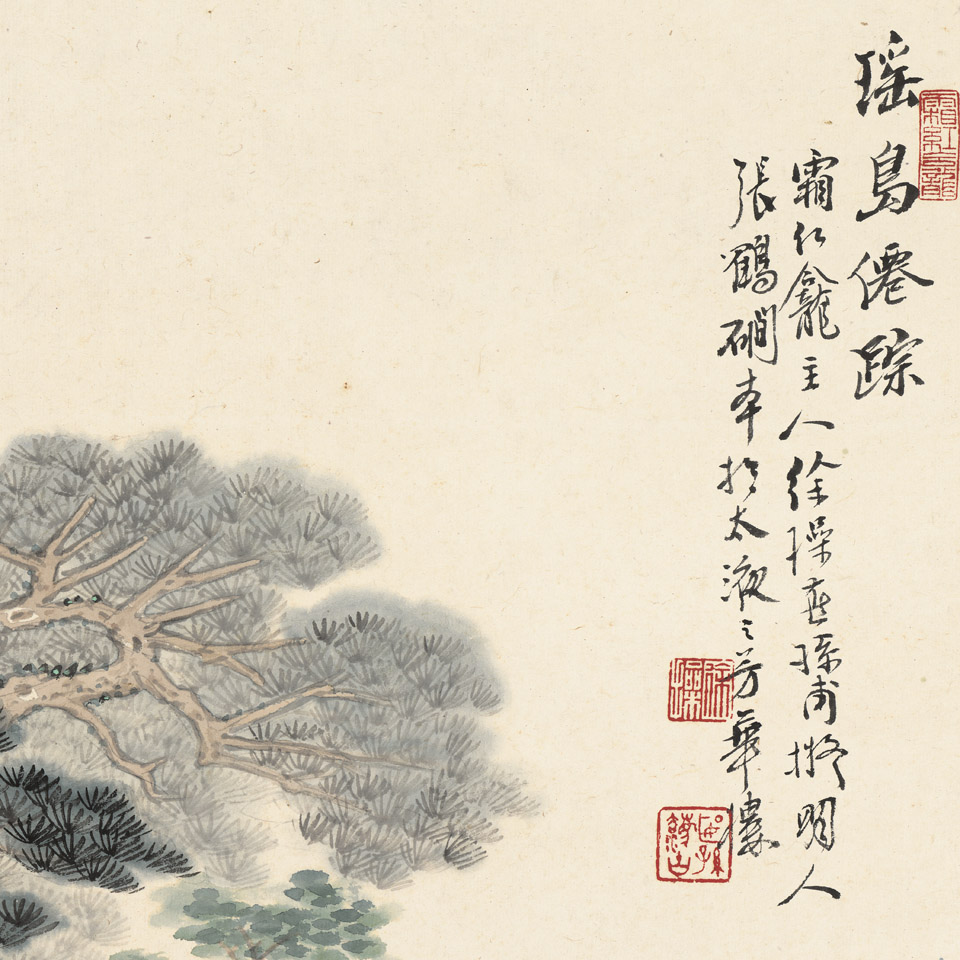 瑶島僊踪
霜紅龕主人徐操燕孫甫擬明人
張鶴磵本於太液之芳華樓
徐操